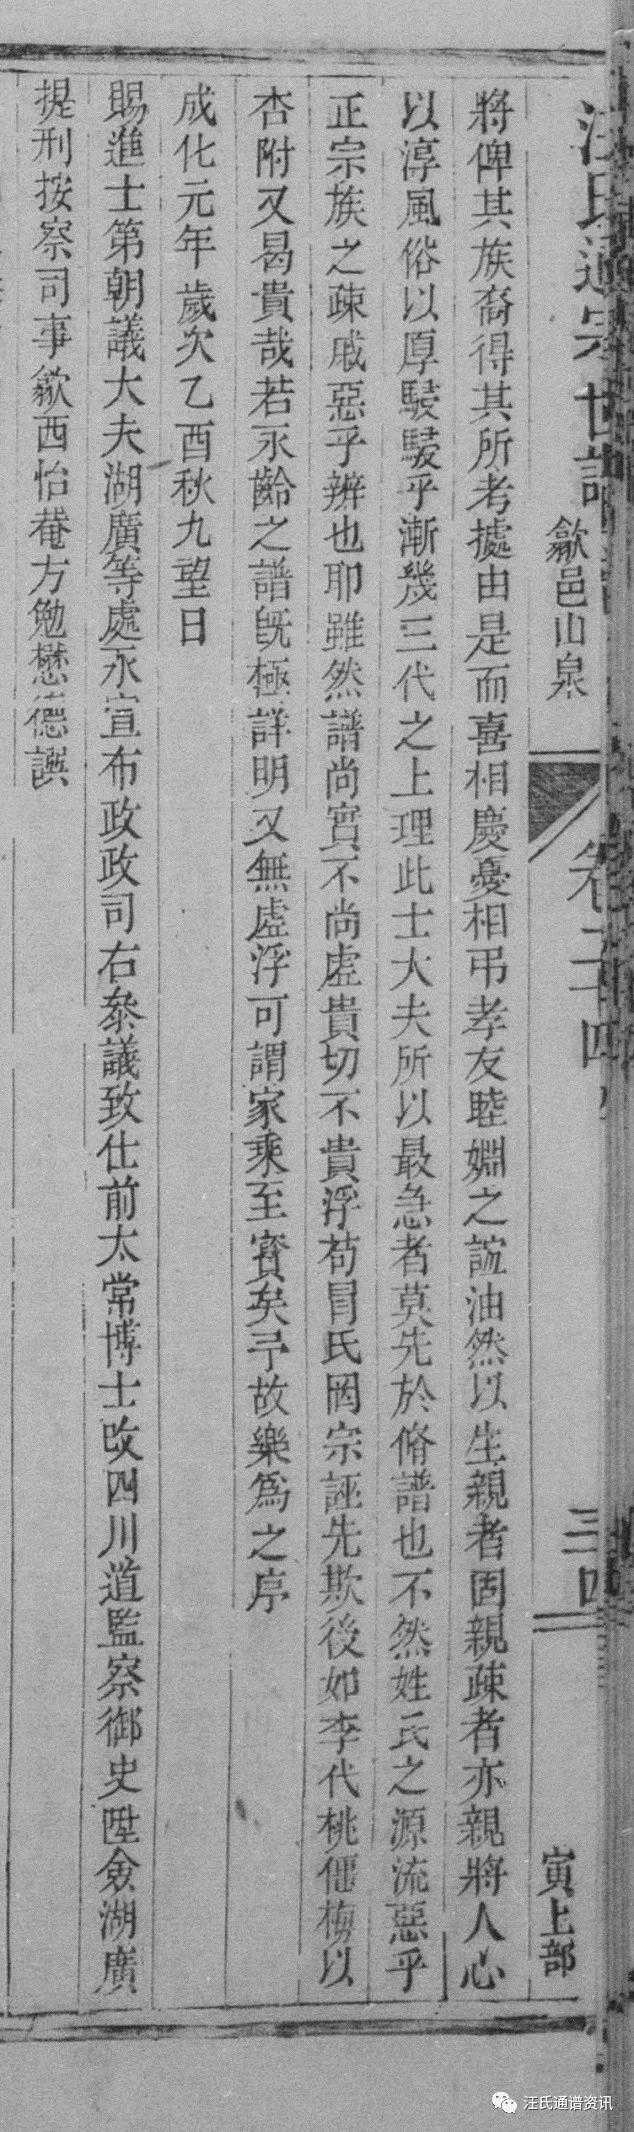 汪氏通宗世譜
歙邑山泉
卷二十四
三四
寅上部
將俾其族裔得其所考據由是而喜相慶憂相弔孝友睦婣之誼油然以生親者固親疎者亦親將人心
以淳風俗以厚駸駸乎漸幾三代之上理此士大夫所以最急者莫先於脩譜也不然姓氏之源流惡乎
正宗族之疎戚惡乎辨也耶雖然譜尚實不尚虛貴切不貴浮苟冒氏罔宗誣先欺後如李代桃僵梅以
杏附又曷貴哉若永齡之譜旣極詳明又無虛浮可謂家乘至寳矣予故樂爲之序
成化元年歲次乙酉秋九望日
賜進士第朝議大夫湖廣等處承宣布政政司右叅議致仕前太常博士改四川道監察御史陞僉湖廣
提刑按察司事歙西怡菴方勉懋德譔
汪氏通谱资讯